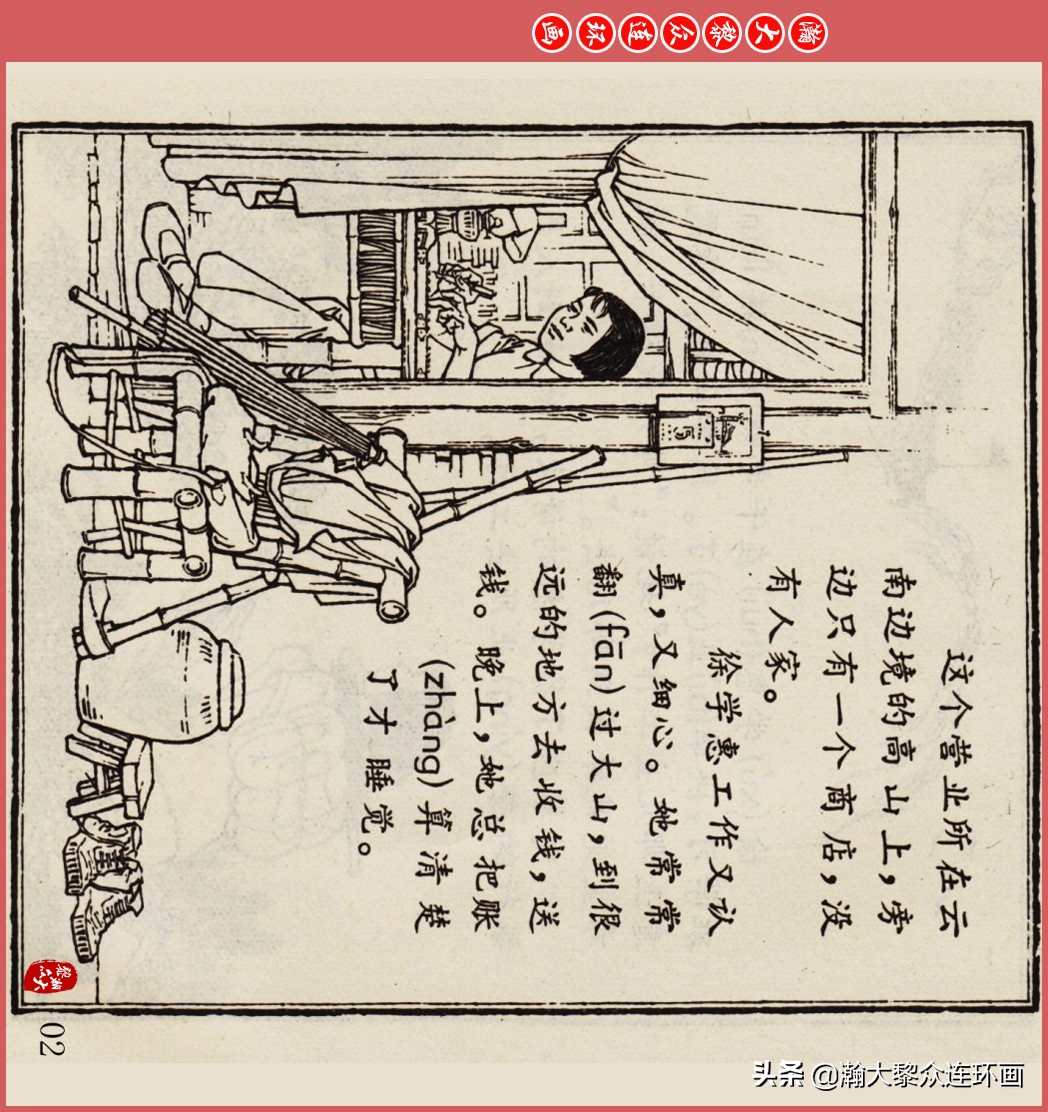 瀚大黎众连环画
这个营业所在云
南边境的高山上，旁
边只有一个商店，没
有人家。
徐学惠工作又认
真，又细心。她常常
翻(fān)过大山，到很
远的地方去收钱，送
钱。晚上，她总把账
(zhàng)算清楚
了才睡觉。
02
头条 @瀚大黎众连环画